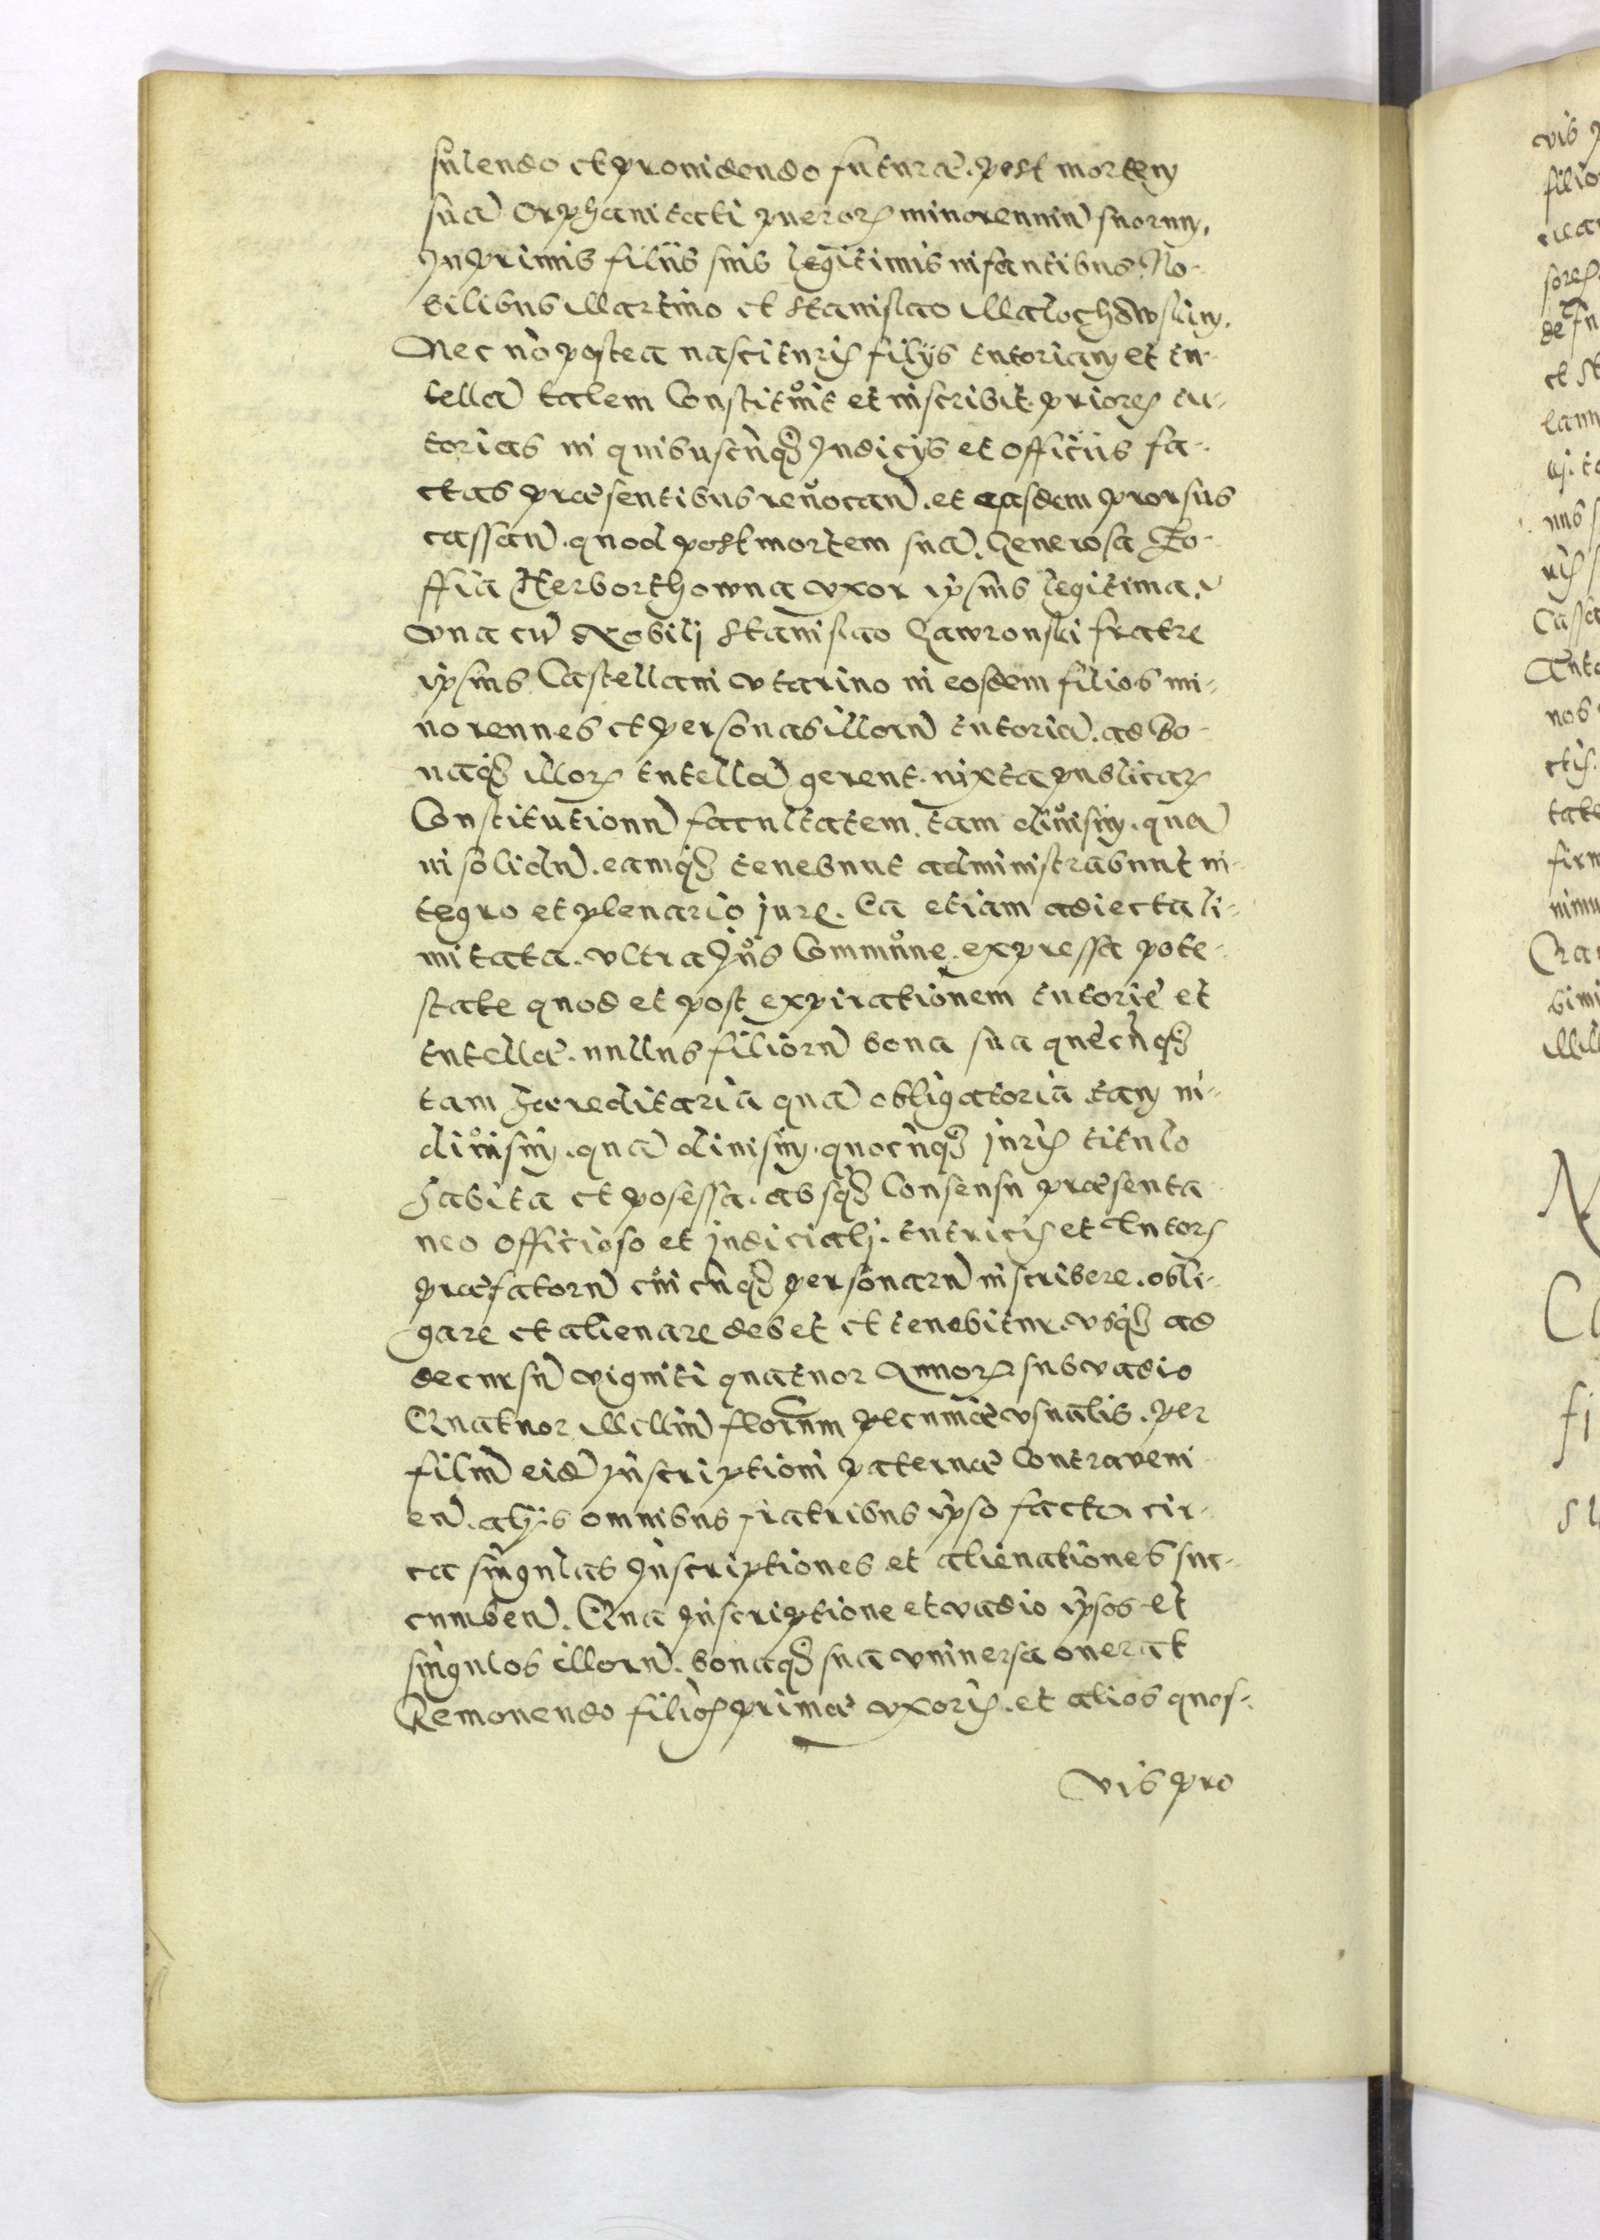 sulendo et providendo futuræ. post mortem
suā Orphanitati pueroꝝ minorenniū suorum.
Inprimis filiis suis legitimis infantibus No-
bilibus Martino et Stanislao Malochowskim.
Nec nō postea nascituris filijs tutoriam et tu-
tellā talem Constituit et inscribit. priores tu-
torias in quibuscūqꝫ Judicijs et officiis fa-
ctas præsentibus revocan̄. et easdem prorsus
cassan̄. quod post mortem suā. Generosa Zo-
ffia Herborthowna uxor ipsius legitima.
una cū Nobili Stanislao Gawronski fratre
ipsius Castellani utarino in eosdem filios mi-
norennes et personas illorū tutoriā. ad bo-
naqꝫ illoꝝ tutellā gerent. iuxta publicaꝝ
Constitutionū facultatem. tam divisim. quā
in solidū. eamqꝫ tenebunt administrabunt in-
tegro et plenario jure. Ea etiam adiecta li-
mitata. ultra Jus Commune. expressa pote-
state quod et post expirationem tutorie et
tutellæ. nullus filiorū bona sua quecūqꝫ
tam hæreditaria quā obligatoria tam in-
divisim. quā divisim. quocūqꝫ juris titulo
habita et posessa. absqꝫ Consensu præsenta
neo officioso et judiciali. tutricis et Tutoꝝ
præfatorū cuicūqꝫ personarū inscribere. obli-
gare et alienare debet et tenebitur. usqꝫ ad
decursū viginti quatuor Annoꝝ sub vadio
Quatuor Milliū florenum pecuniæ usualis. per
filiū eidē Inscriptioni paternæ Contraveni
en̄. alijs omnibus fratribus ipso facto cir-
ca singulas Inscriptiones et alienationes suc-
cumben̄. Qua Inscriptione et vadio ipsos et
singulos illorū. bonaqꝫ sua universa onerat
Removendo filios primæ uxoris. et alios quos-
vis pro